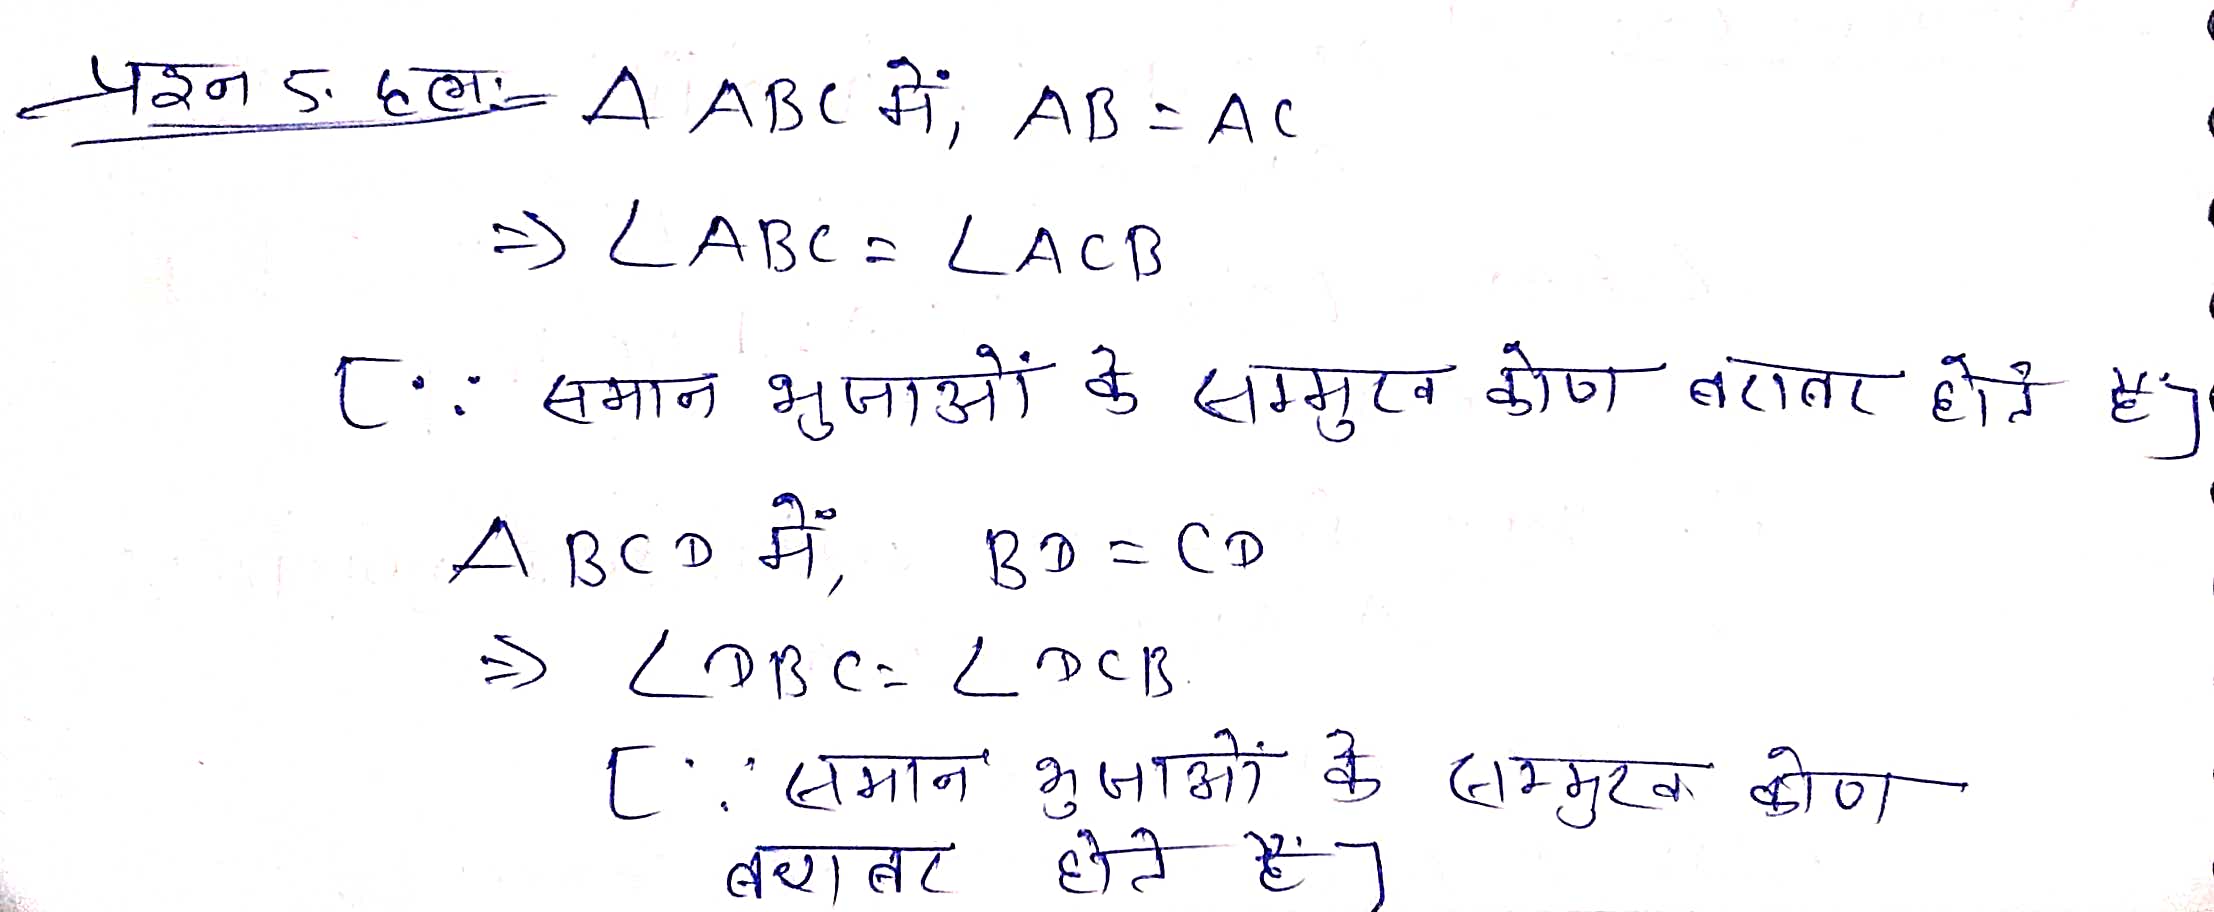 प्रश्न 5. हल:- Δ ABC में, AB = AC
⇒ ∠ABC = ∠ACB
[∵ समान भुजाओं के सम्मुख कोण बराबर होते हैं]
Δ BCD में, BD = CD
⇒ ∠DBC = ∠DCB
[∵ समान भुजाओं के सम्मुख कोण
बराबर होते हैं]